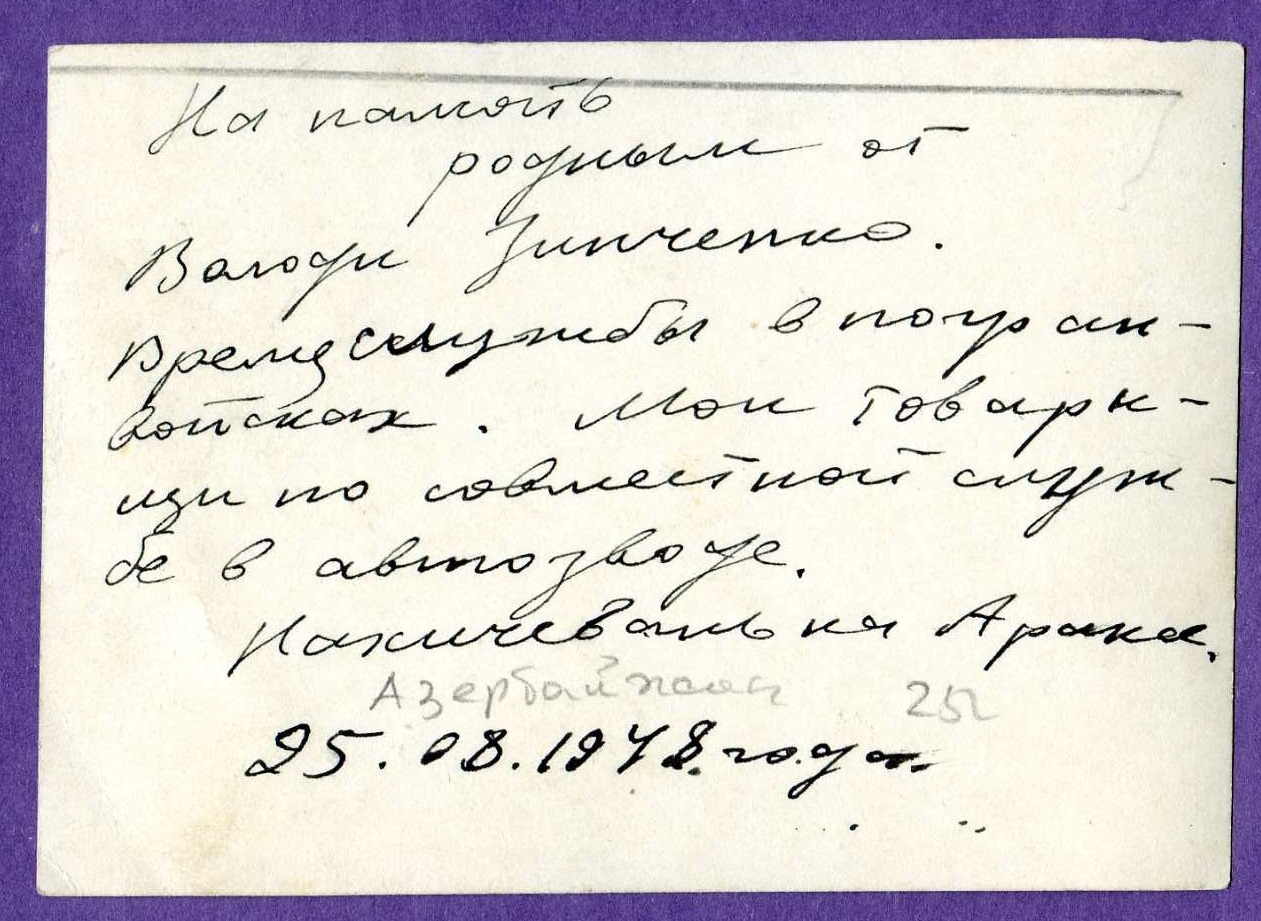 На память
родным от
Володи Зинченко.
Время службы в погран-
войсках. Мои товари-
щи по совместной служ-
бе в автозводе.
Нахичевань на Араксе.
Азербайжан 25г
25.08.1948 года.